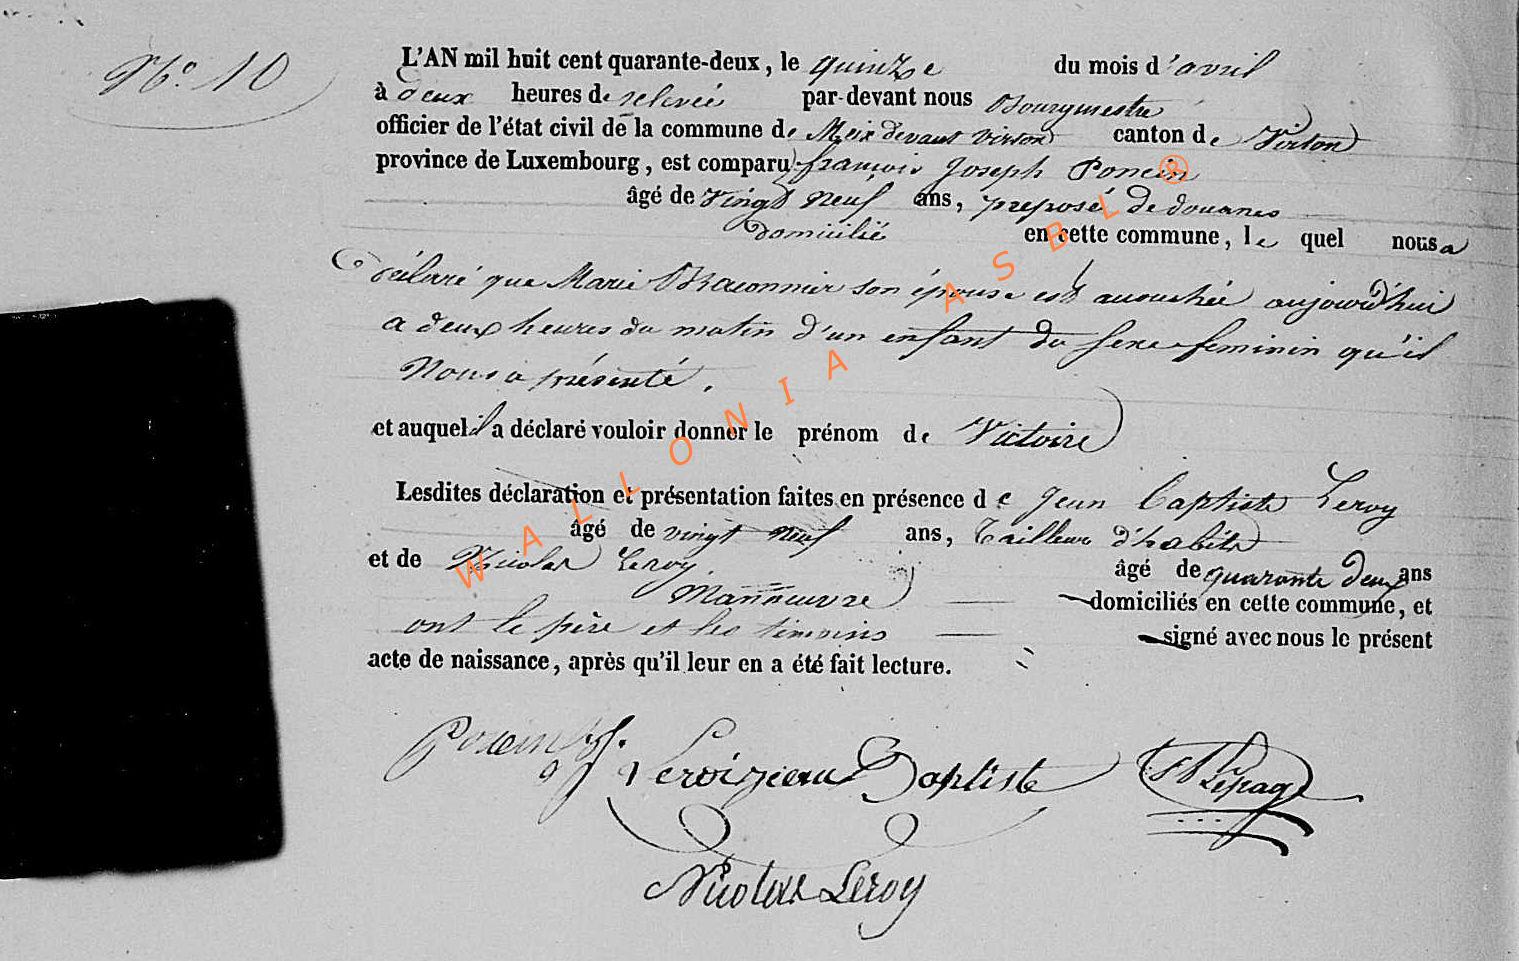 N° 10
L'AN mil huit cent quarante-deux, le quinze du mois d'avril
à deux heures de relevée par-devant nous Bourgmestre
officier de l'état civil de la commune de Meix devant Virton canton de Virton
province de Luxembourg, est comparu françois Joseph Poncin
âgé de vingt neuf ans, preposé de douanes
domicilié en cette commune, le quel nous a
déclaré que Marie Braconnier son épouse est accouchée aujourd'hui
a deux heures du matin d'un enfant du sexe feminin qu'il
Nous a présenté.
et auquel il a déclaré vouloir donner le prénom de Victoire
Lesdites déclaration et présentation faites en présence de Jean Baptiste Leroy
âgé de vingt neuf ans, Tailleur d'habits
et de Nicolas Leroy âgé de quarante deux ans
Manoeuvre domiciliés en cette commune, et
ont le père et les témoins signé avec nous le présent
acte de naissance, après qu'il leur en a été fait lecture.
Poncin fj. Leroi jean Baptiste Lepage
Nicolas Leroy
WALLONIA ASBL ®